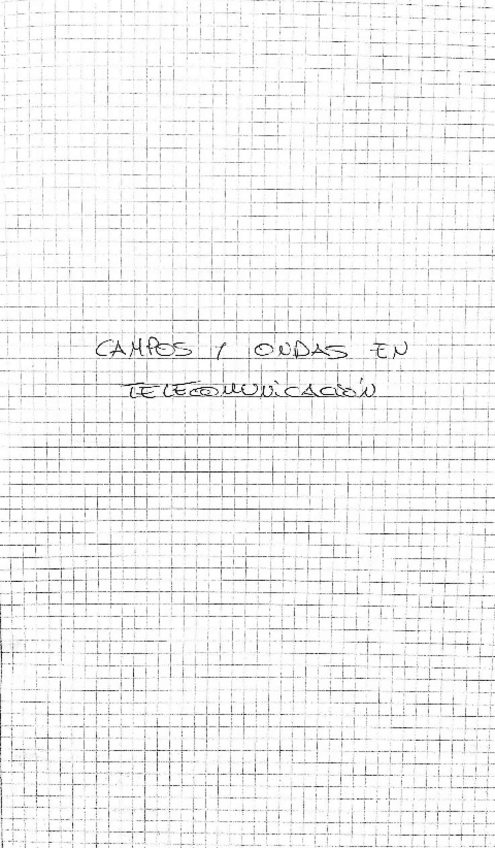 CAMPOS Y ONDAS EN
TELECOMUNICACIÓN